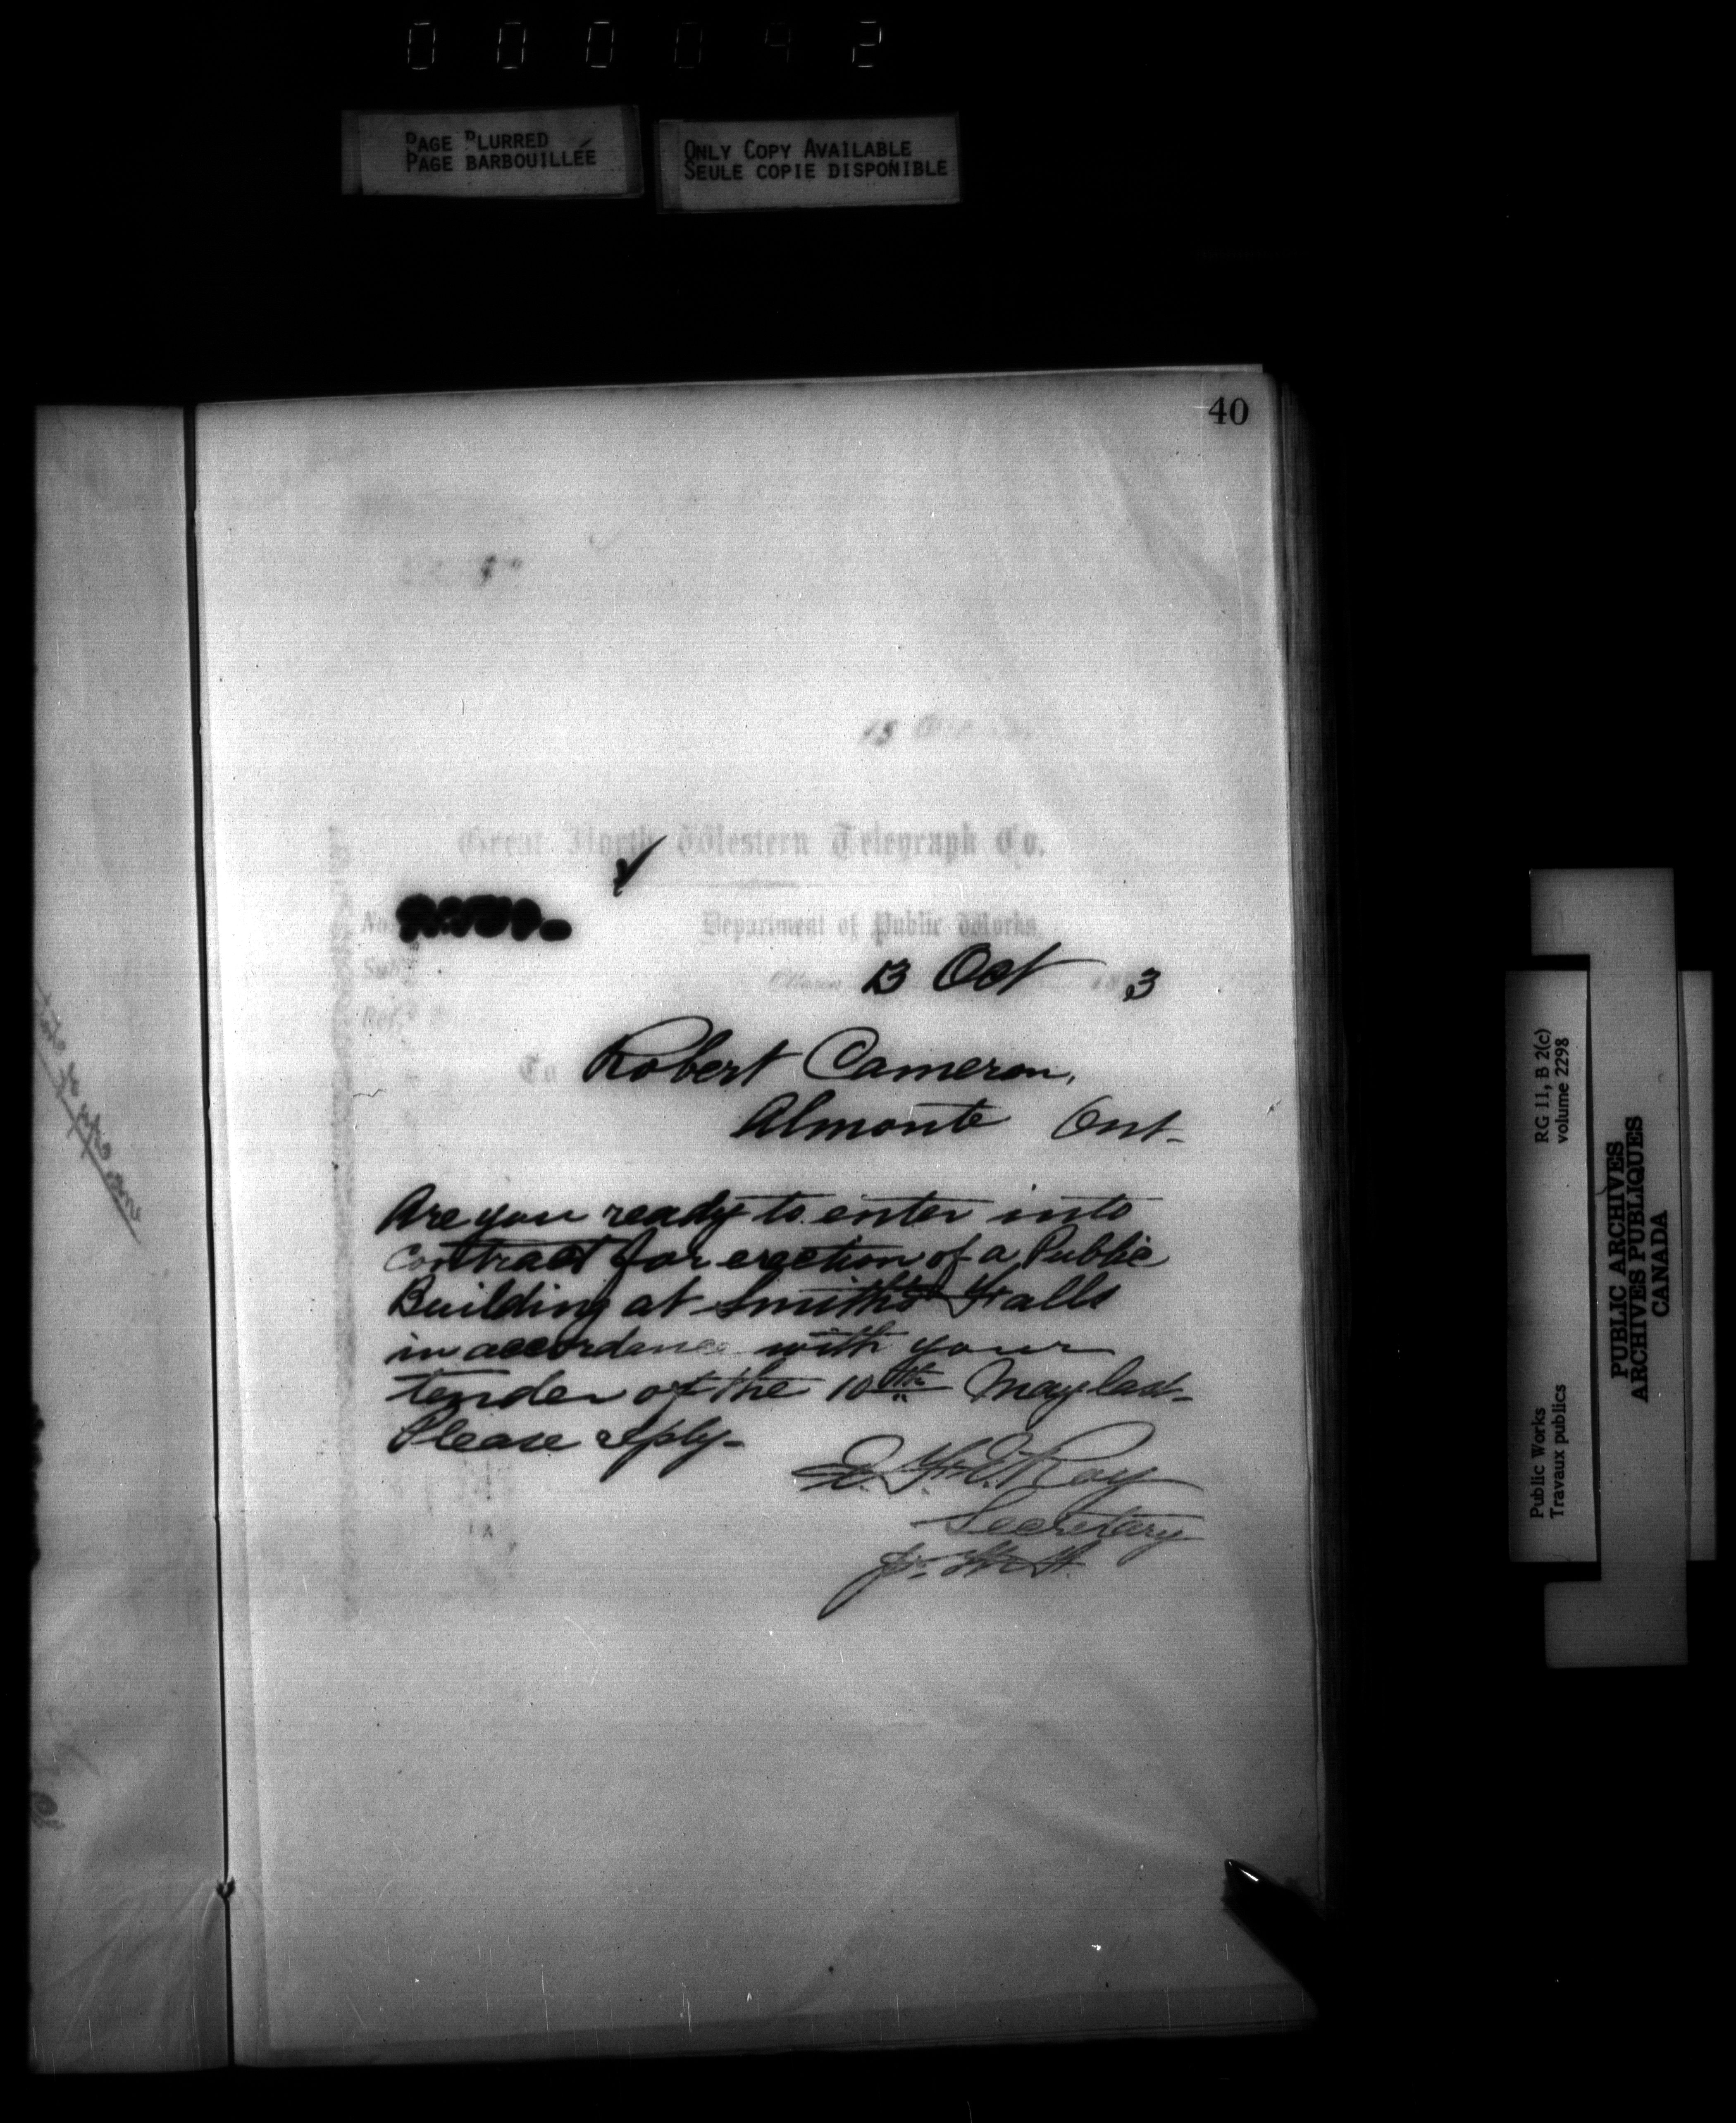 000042
PAGE BLURRED
PAGE BARBOUILLÉE
ONLY COPY AVAILABLE
SEULE COPIE DISPONIBLE
40
13
Great North Western Telegraph Co.
No.
Department of Public Works,
Sub.
Ottawa 13 Oct 18 3
Ref.
To Robert Cameron,
Almonte Ont-
Are you ready to enter into
contract for erection of a Public
Building at Smith's Falls
in accordance with your
tender of the 10th May last-
Please reply-
E. F. E. Roy
Secretary
Public Works
Travaux publics
RG 11, B 2(c)
volume 2298
PUBLIC ARCHIVES
ARCHIVES PUBLIQUES
CANADA